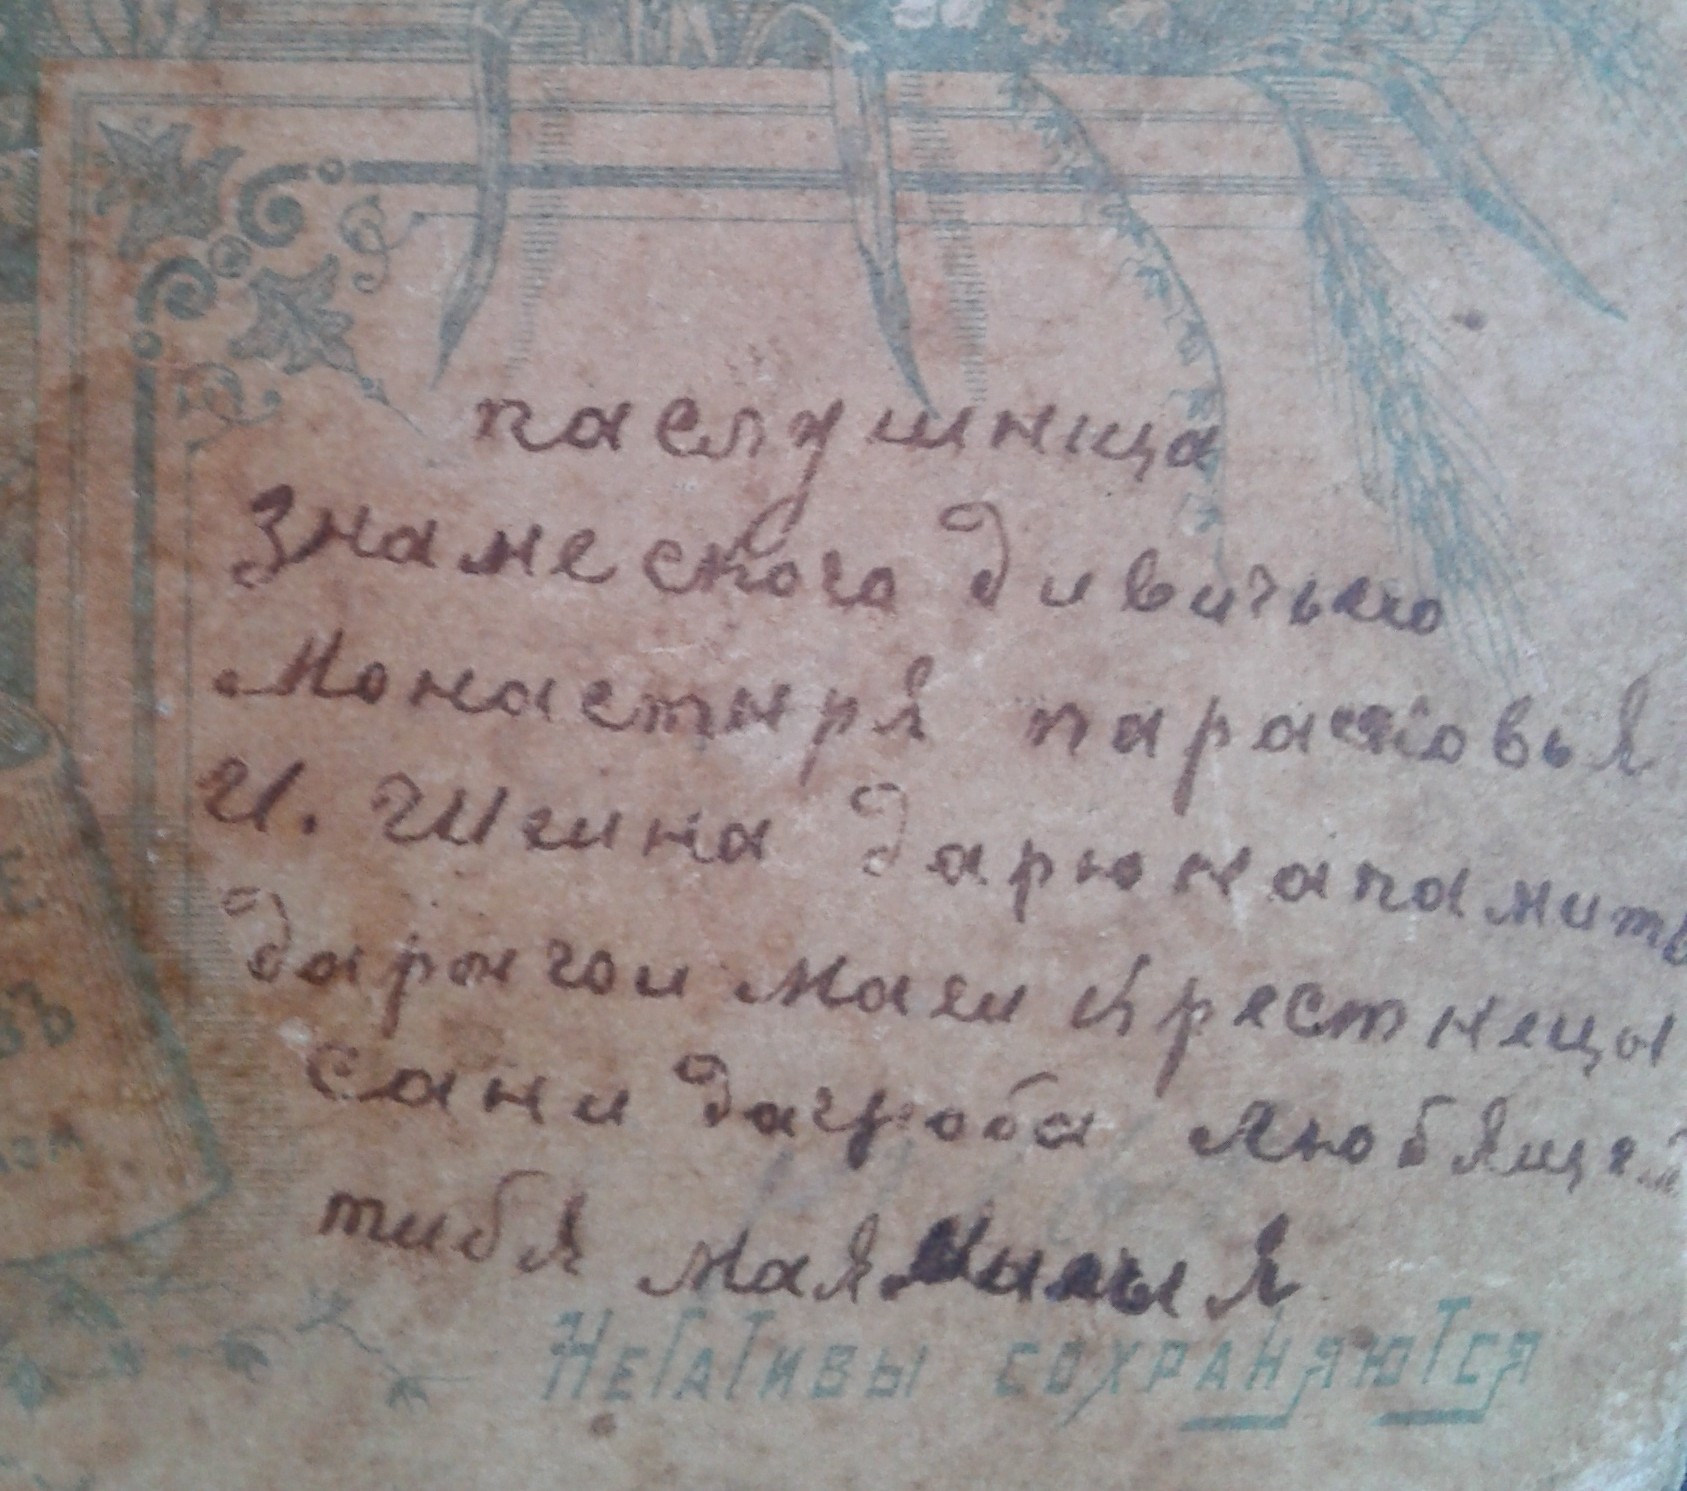 паслушница
Знамескога дивичьяго
Монастыря парасковья
И. Шеина дарю напамить
дарагои маеи Крестнецы
сани дагроба Люблящей
тибя мая милыя
Негативы сохраняются